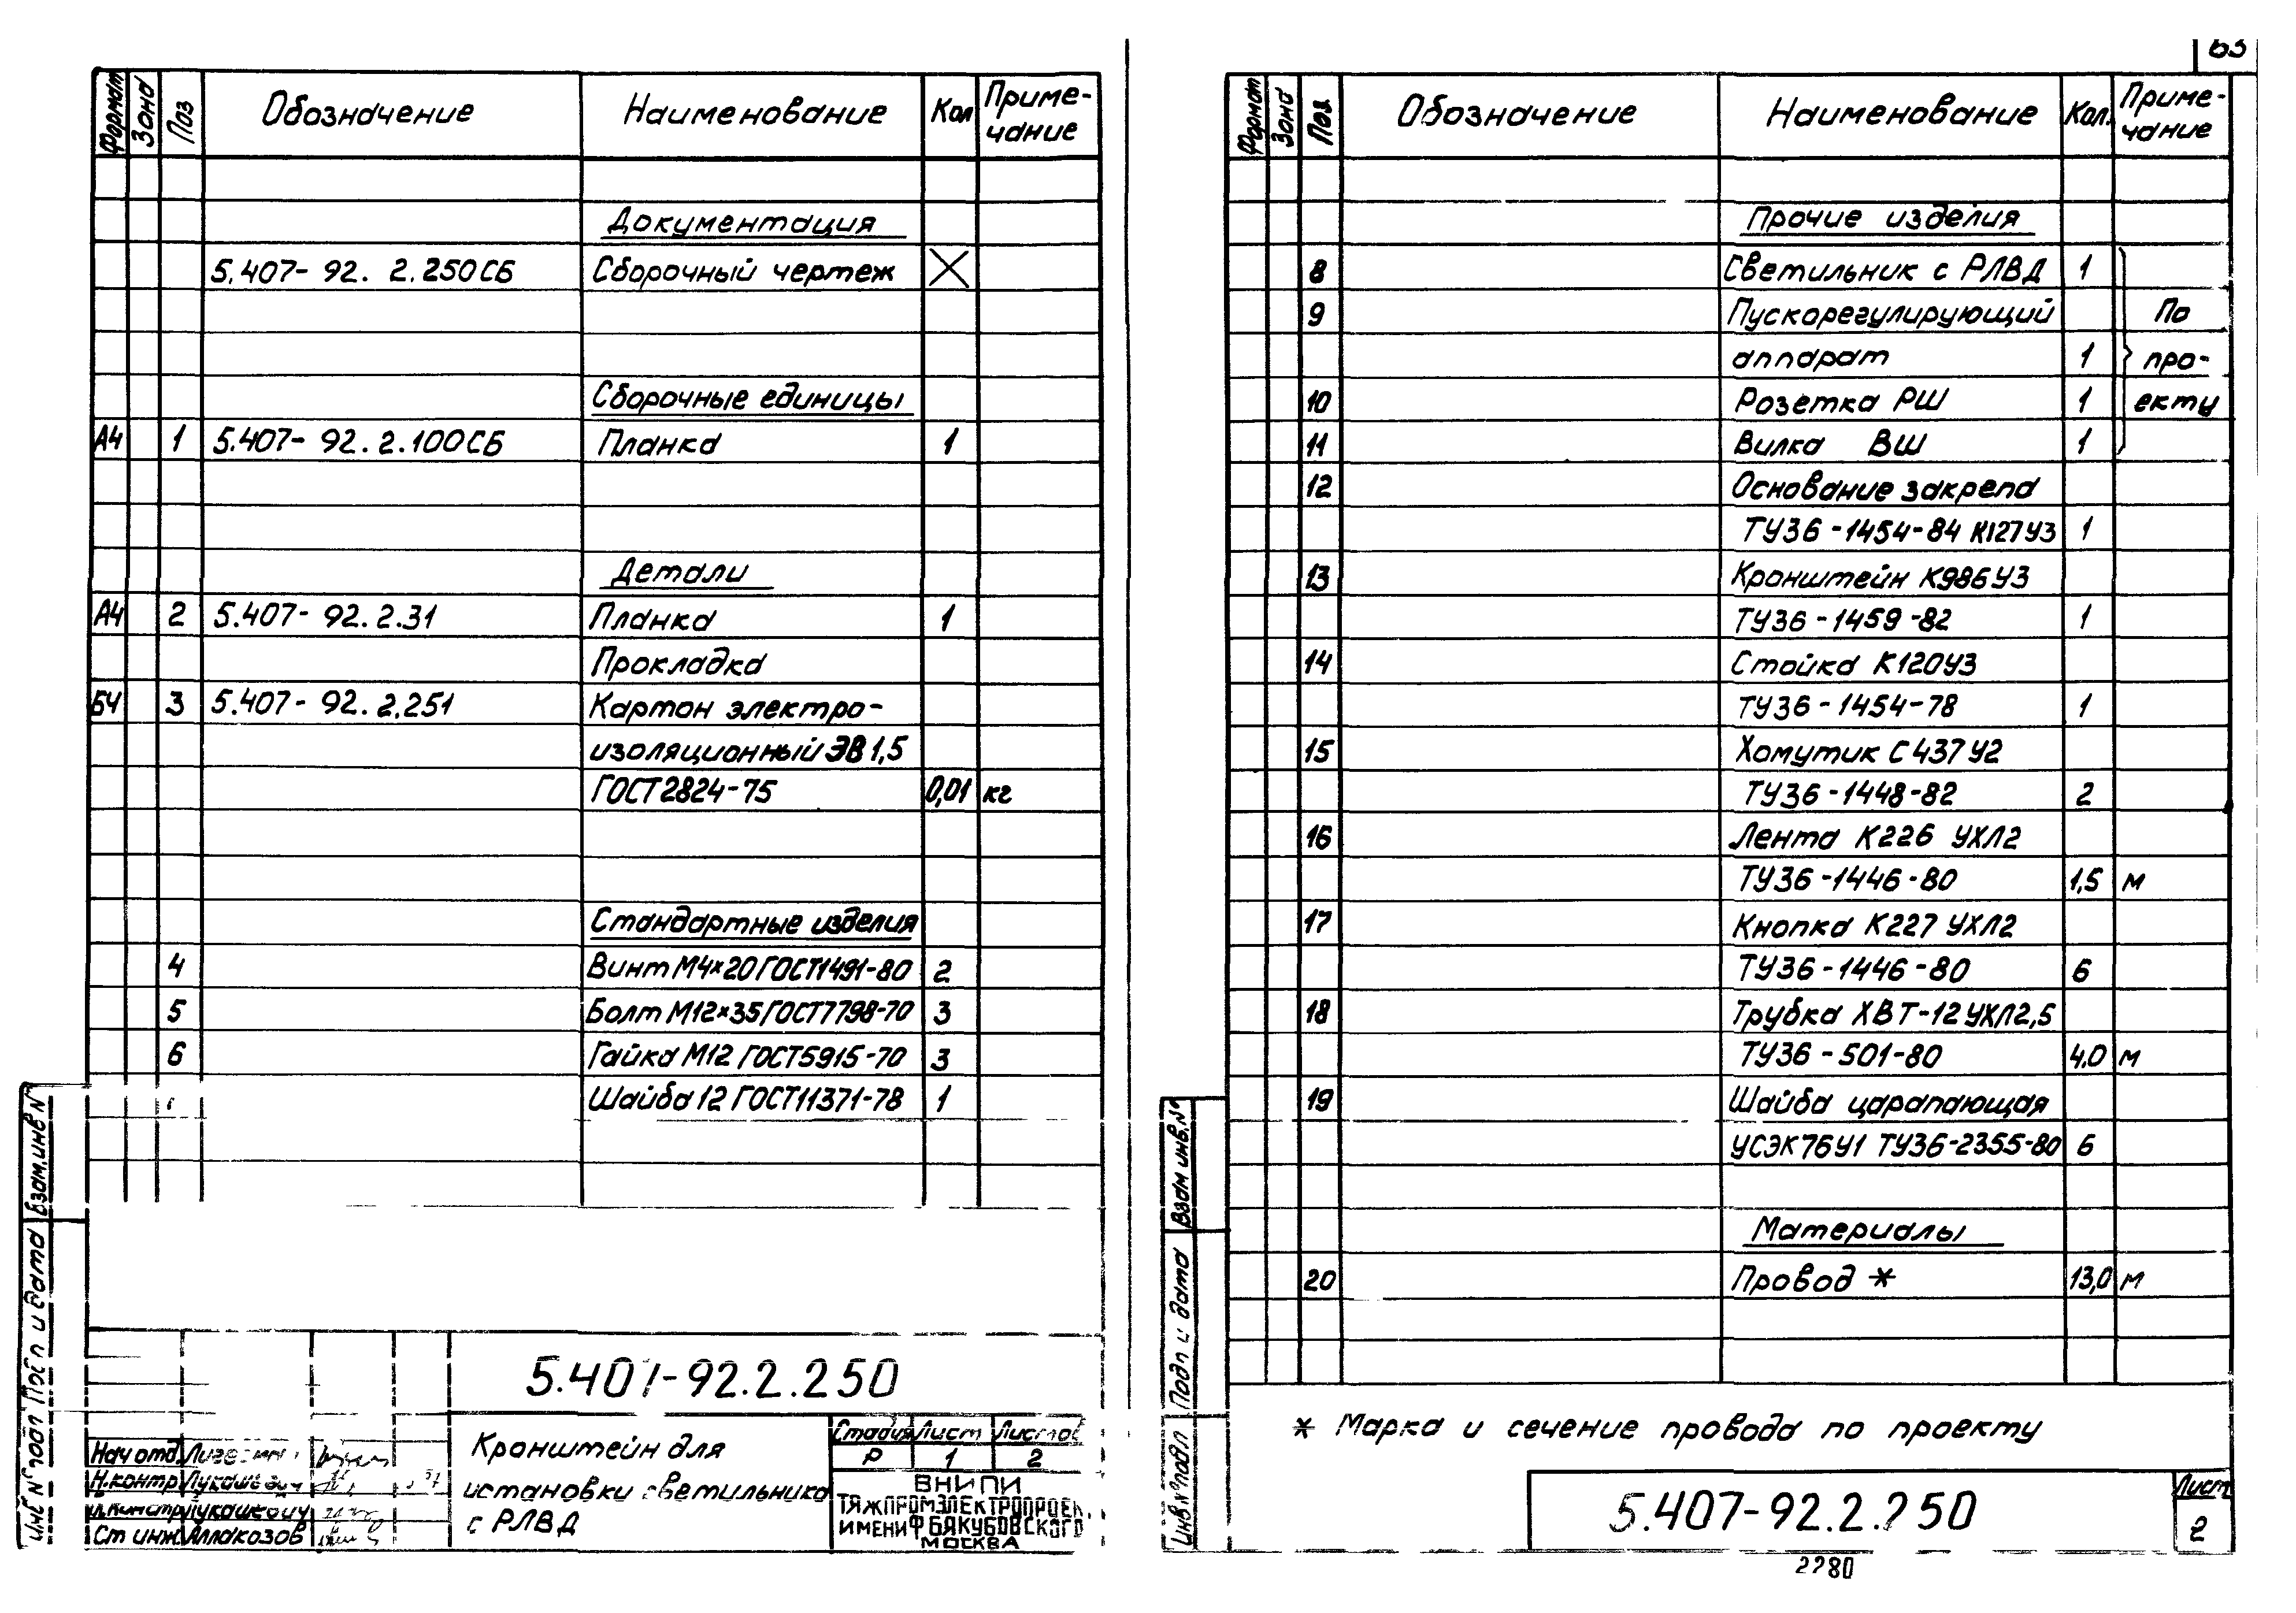 Формат Зона Поз Обозначение Наименование Кол Приме-
чание
Документация
5.407-92. 2.250СБ Сборочный чертеж
Сборочные единицы
А4 1 5.407-92.2.100СБ Планка 1
Детали
А4 2 5.407-92.2.31 Планка 1
Прокладка
БЧ 3 5.407-92.2.251 Картон электро-
изоляционный ЭВ 1,5
ГОСТ 2824-75 0,01 кг
Стандартные изделия
4 Винт М4×20 ГОСТ1491-80 2
5 Болт М12×35 ГОСТ7798-70 3
6 Гайка М12 ГОСТ5915-70 3
Шайба 12 ГОСТ11371-78 1
Взам.инв N
Подп и дата
Инв N подл
5.407-92.2.250
Кронштейн для
установки светильника
с РЛВД
Стадия Лист Листов
Р 1 2
ВНИПИ
ТЯЖПРОМЭЛЕКТРОПРОЕК
ИМЕНИ Ф Б ЯКУБОВСКОГО
МОСКВА
Нач отд
Н.контр Лукашевич
Лукашевич
Ст инж. Аллакозов
63
Формат Зона Поз. Обозначение Наименование Кол. Приме-
чание
Прочие изделия
8 Светильник с РЛВД 1
9 Пускорегулирующий По
аппарат 1 про-
10 Розетка РШ 1 екту
11 Вилка ВШ 1
12 Основание закрепа
ТУ36-1454-84 К127У3 1
13 Кронштейн К986У3
ТУ36-1459-82 1
14 Стойка К120У3
ТУ36-1454-78 1
15 Хомутик С437У2
ТУ36-1448-82 2
16 Лента К226 УХЛ2
ТУ36-1446-80 1,5 м
17 Кнопка К227 УХЛ2
ТУ36-1446-80 6
18 Трубка ХВТ-12 УХЛ2,5
ТУ36-501-80 4,0 м
19 Шайба царапающая
УСЭК76У1 ТУ36-2355-80 6
Материалы
20 Провод * 13,0 м
* Марка и сечение провода по проекту
Взам инв.N°
Подп и дата
Инв.N°подл
5.407-92.2.250
Лист
2
2280